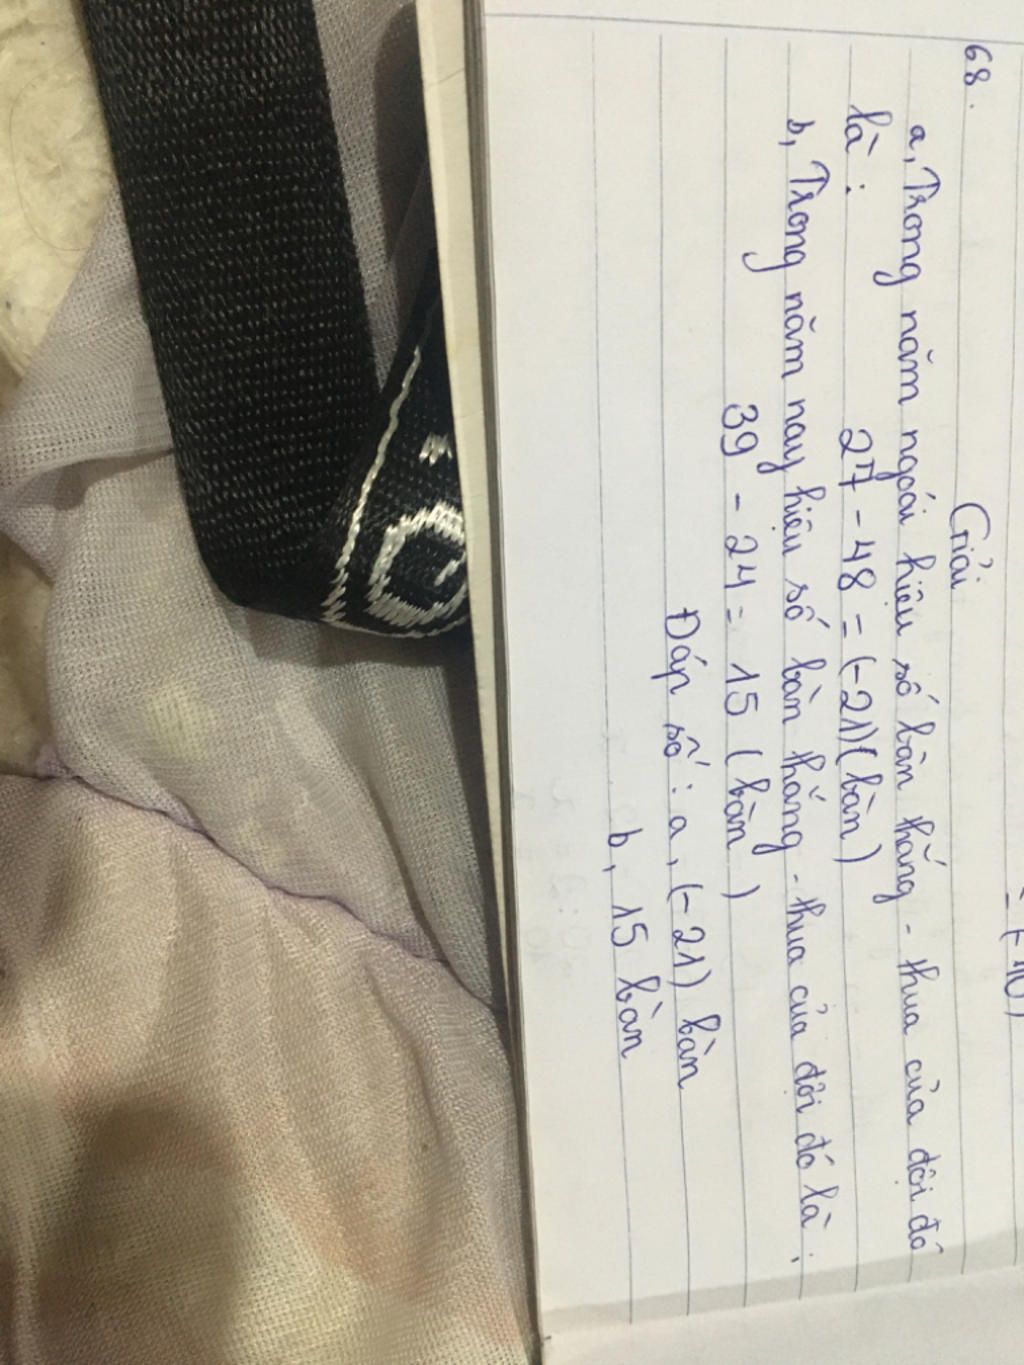 = (-40)
68.
Giải
a, Trong năm ngoái hiệu số bàn thắng - thua của đội đó
là :
27 - 48 = (-21)(bàn)
b, Trong năm nay hiệu số bàn thắng - thua của đội đó là :
39 - 24 = 15 (bàn)
Đáp số : a, (-21) bàn
b, 15 bàn